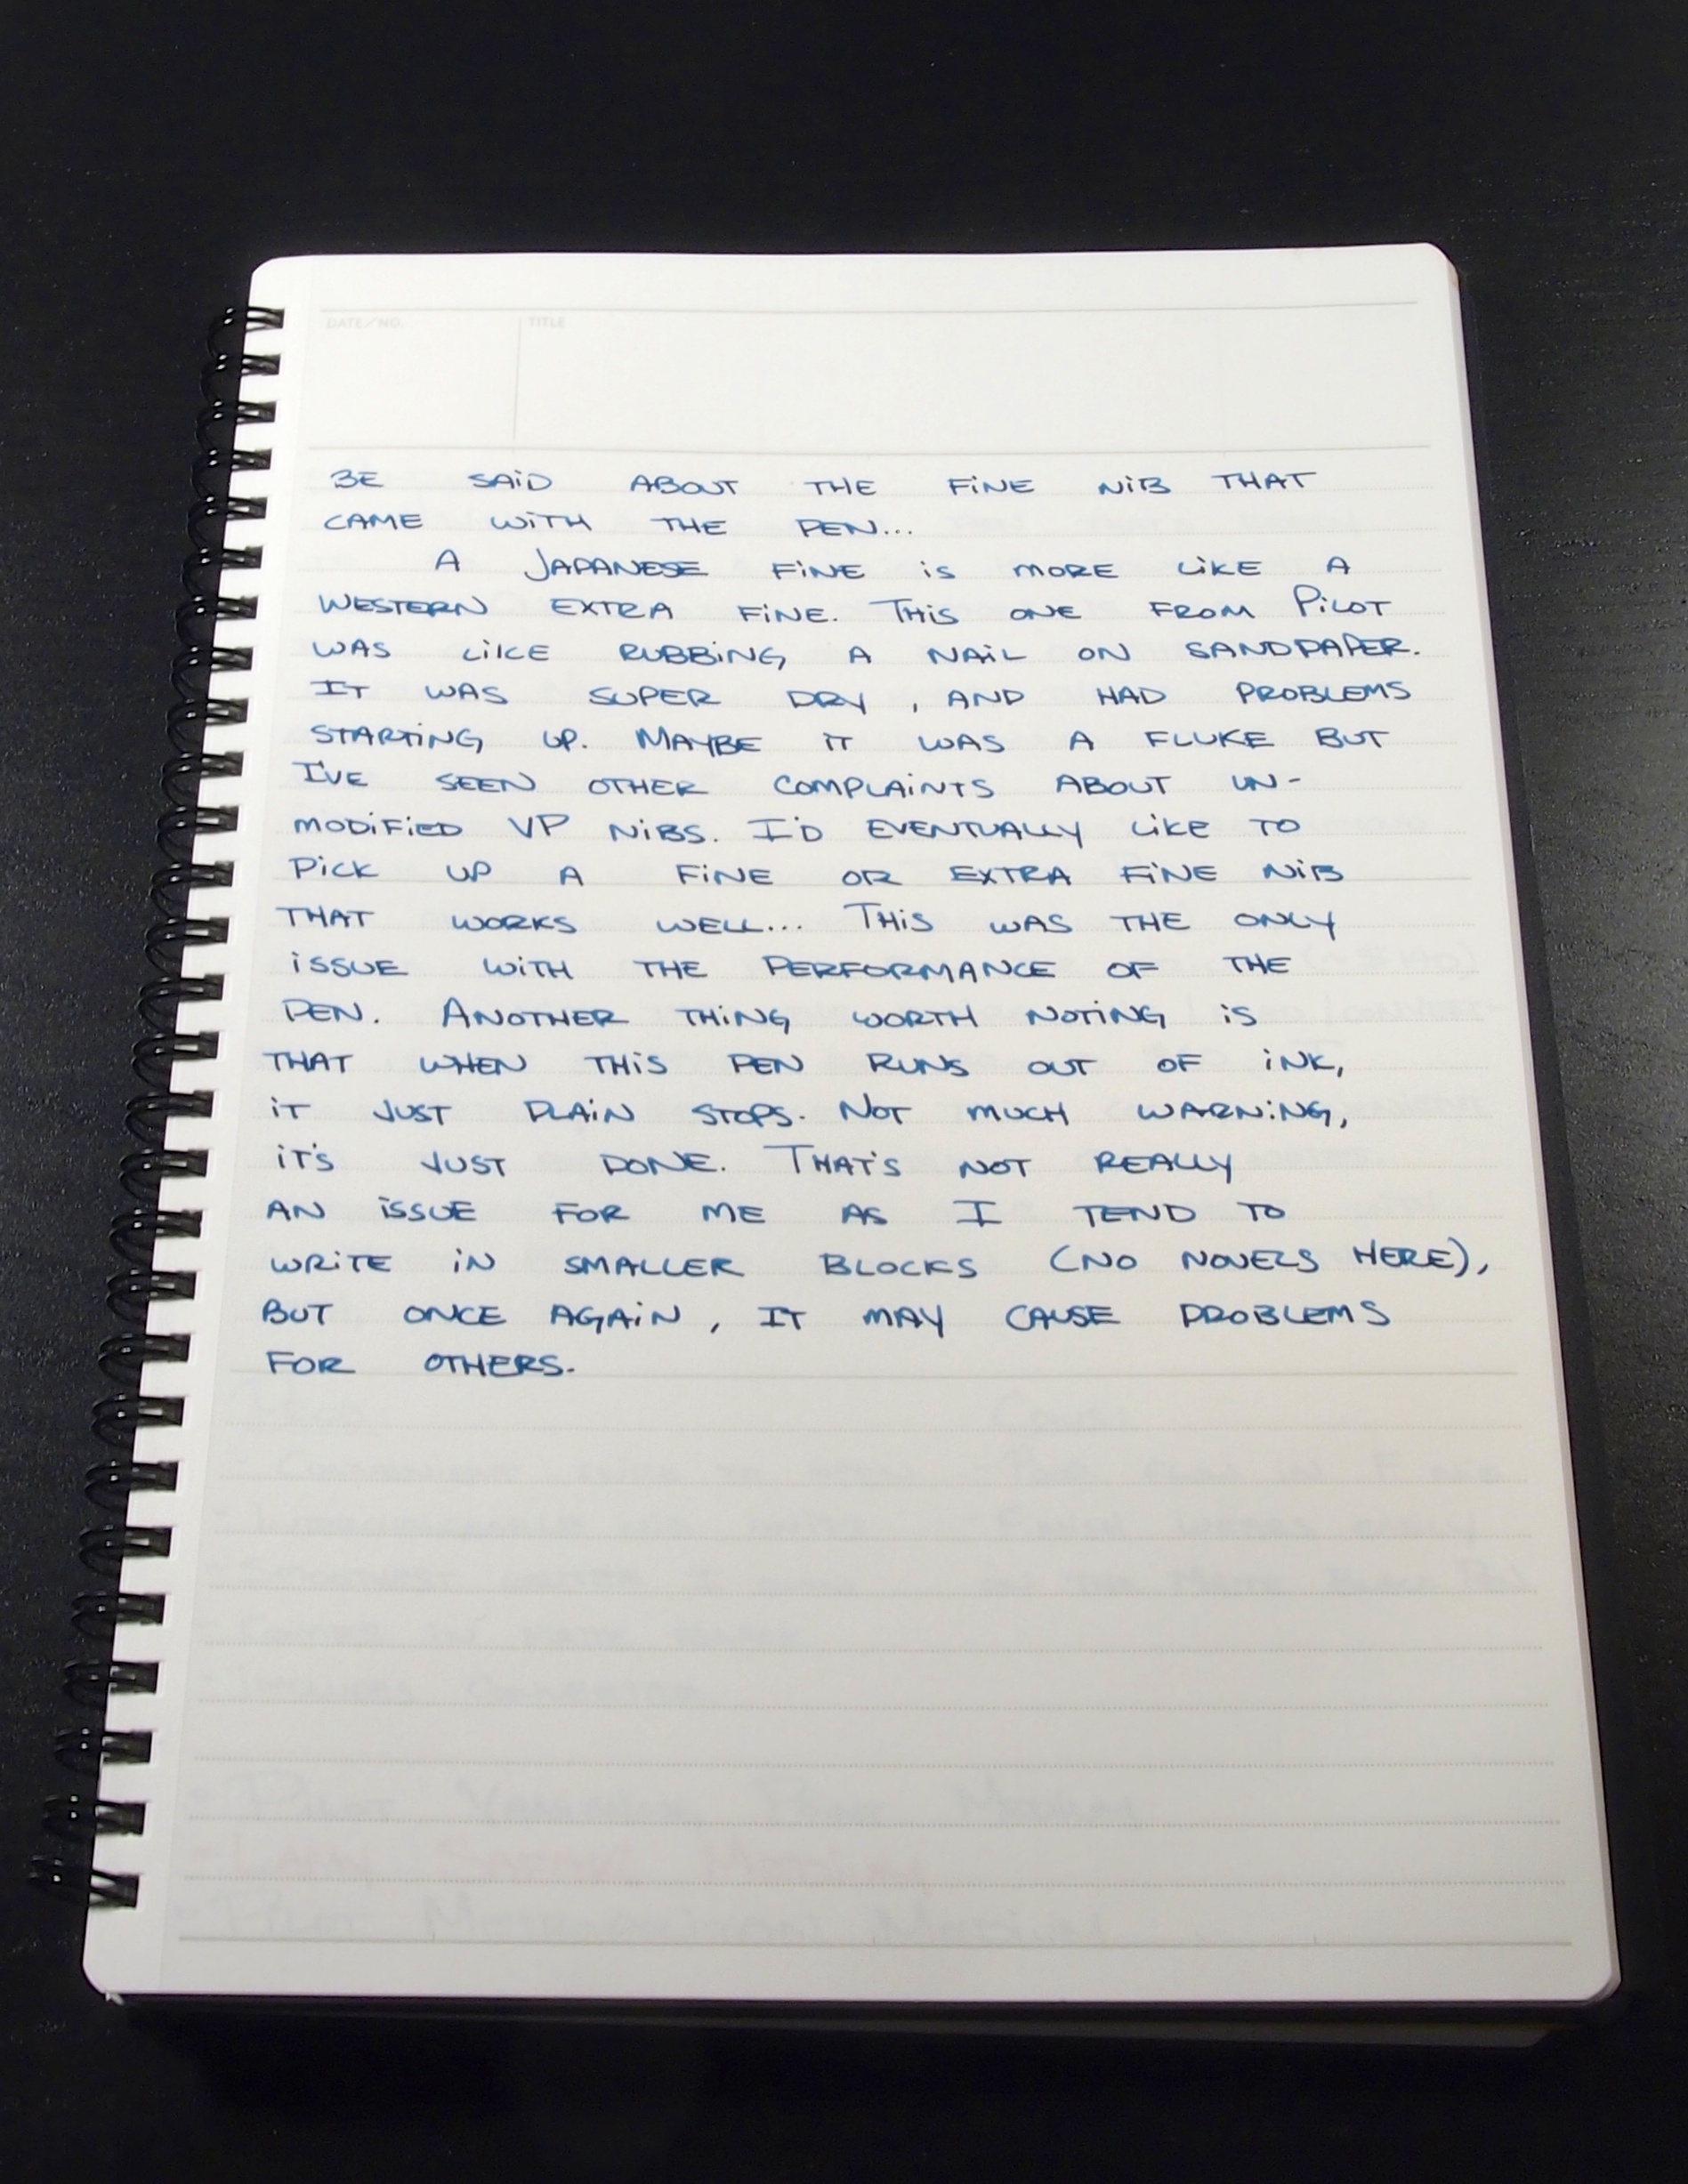 DATE/NO. TITLE
BE SAiD ABOUT THE FiNE NiB THAT
CAME WiTH THE PEN...
A JAPANESE FiNE iS MORE LiKE A
WESTERN EXTRA FiNE. THiS ONE FROM PiLOT
WAS LiKE RUBBiNG A NAiL ON SANDPAPER.
IT WAS SUPER DRY, AND HAD PROBLEMS
STARTiNG UP. MAYBE iT WAS A FLUKE BUT
I'VE SEEN OTHER COMPLAiNTS ABOUT UN-
MODiFiED VP NiBS. I'D EVENTUALLY LiKE TO
PiCK UP A FiNE OR EXTRA FiNE NiB
THAT WORKS WELL... THiS WAS THE ONLY
iSSUE WiTH THE PERFORMANCE OF THE
PEN. ANOTHER THiNG WORTH NOTiNG iS
THAT WHEN THiS PEN RUNS OUT OF iNK,
iT JUST PLAiN STOPS. NOT MUCH WARNiNG,
iT'S JUST DONE. THAT'S NOT REALLY
AN iSSUE FOR ME AS I TEND TO
WRiTE iN SMALLER BLOCKS (NO NOVELS HERE),
BUT ONCE AGAiN, IT MAY CAUSE PROBLEMS
FOR OTHERS.